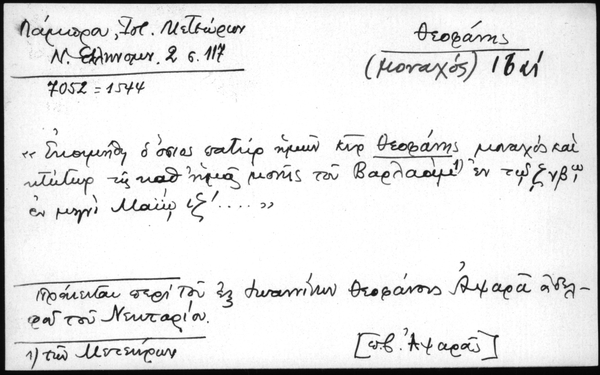 Λάμπρου, Ἱστ. Μετεώρων
Ν. Ἑλληνομν. 2 σ. 117
7052 = 1544
Θεοφάνης
(μοναχός) 16 αἰ
« Ἐκοιμήθη ὁ ὅσιος πατὴρ ἡμῶν κὺρ Θεοφάνης μοναχὸς καὶ
κτίτωρ τῆς καθ' ἡμᾶς μονῆς τοῦ Βαρλαὰμ 1) ἐν τῷ ζνβῳ
ἐν μηνὶ Μαΐῳ ιζ'.... »
Πρόκειται περὶ τοῦ ἐξ Ἰωαννίνων Θεοφάνους Ἀψαρᾶ ἀδελ-
φοῦ τοῦ Νεκταρίου.
1) τῶν Μετεώρων
[πβ. Ἀψαρᾶς]